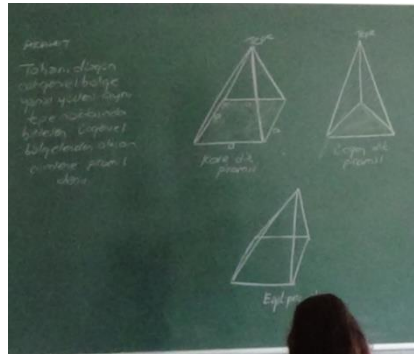 PİRAMİT
Tepe
Tepe
Tabanı düzgün
çokgensel bölge
yanal yüzleri
tepe noktasında
birleşen üçgensel
bölgelerden oluşan
cisimlere piramit
denir
a
a
Kare dik
piramit
Üçgen dik
piramit
Eğik